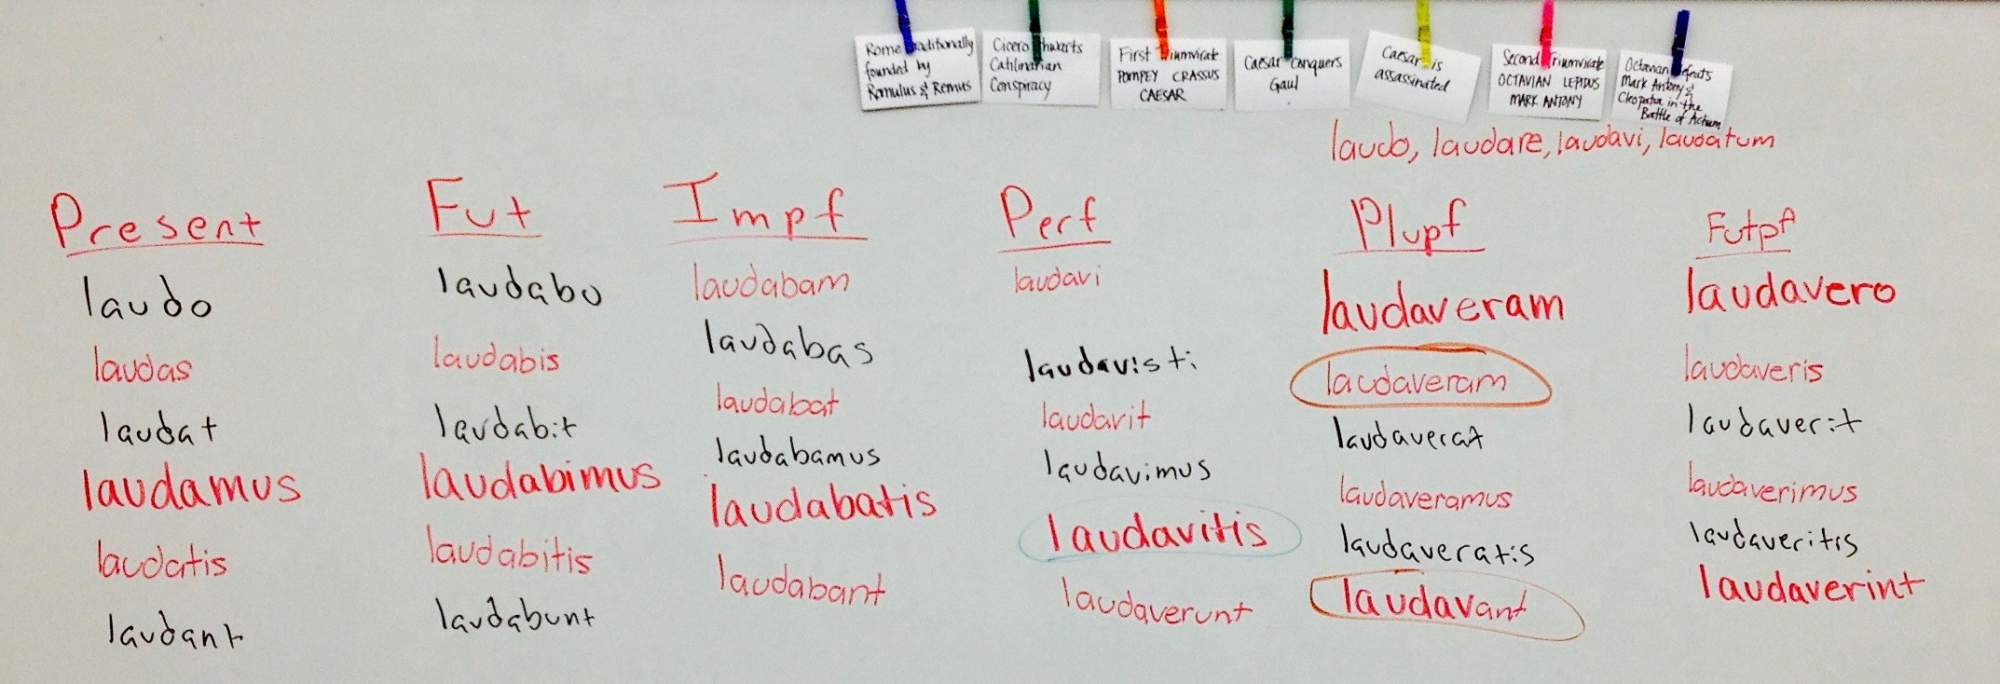 Rome traditionally
founded by
Romulus & Remus
Cicero thwarts
Catilinarian
Conspiracy
First Triumvirate
POMPEY CRASSUS
CAESAR
Caesar conquers
Gaul
Caesar is
assassinated
Second Triumvirate
OCTAVIAN LEPIDUS
MARK ANTONY
Octavian defeats
Mark Antony &
Cleopatra in the
Battle of Actium
laudo, laudare, laudavi, laudatum
Present
laudo
laudas
laudat
laudamus
laudatis
laudant
Fut
laudabo
laudabis
laudabit
laudabimus
laudabitis
laudabunt
Impf
laudabam
laudabas
laudabat
laudabamus
laudabatis
laudabant
Perf
laudavi
laudavisti
laudavit
laudavimus
laudavitis
laudaverunt
Plupf
laudaveram
laudaveram
laudaverat
laudaveramus
laudaveratis
laudavant
Futpf
laudavero
laudaveris
laudaverit
laudaverimus
laudaveritis
laudaverint